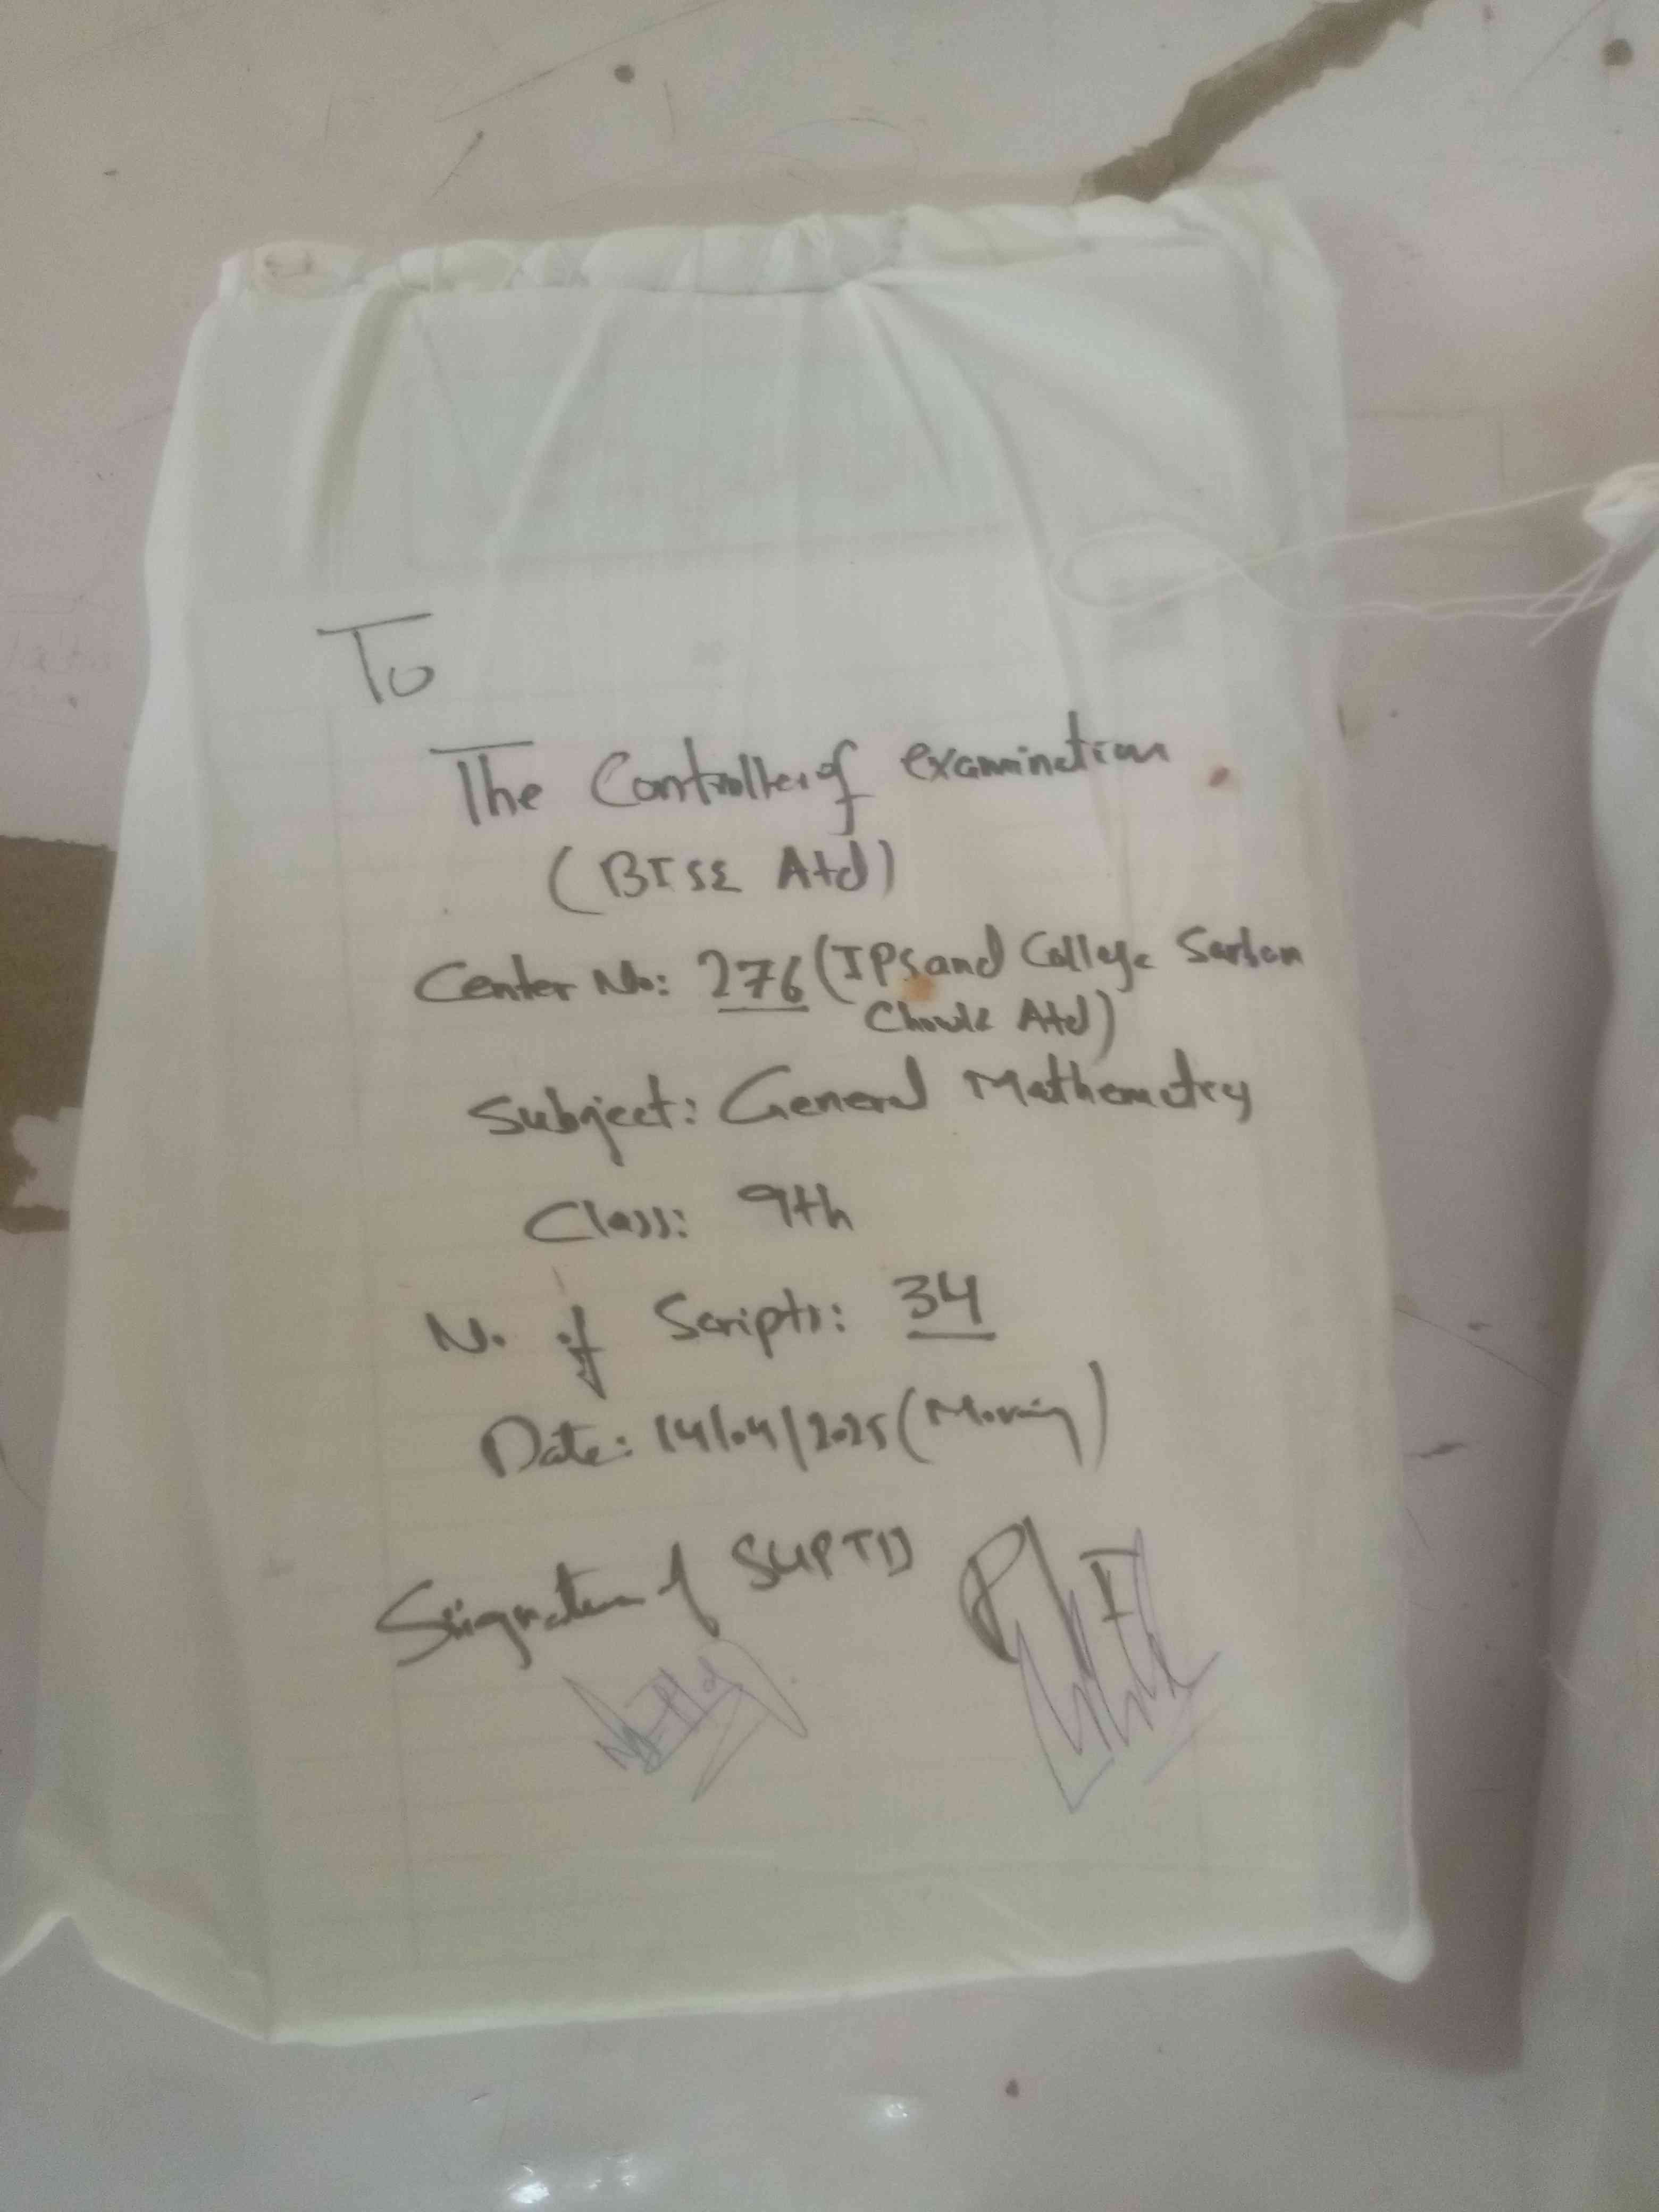 To
The Controller of examination
(BISE Atd)
Center No: 276 (IPS and College Sarban
Chowk Atd)
Subject: General Mathematics
Class: 9th
N. of Scripts: 34
Date: 14/04/2025 (Morning)
Signature of SUPTD